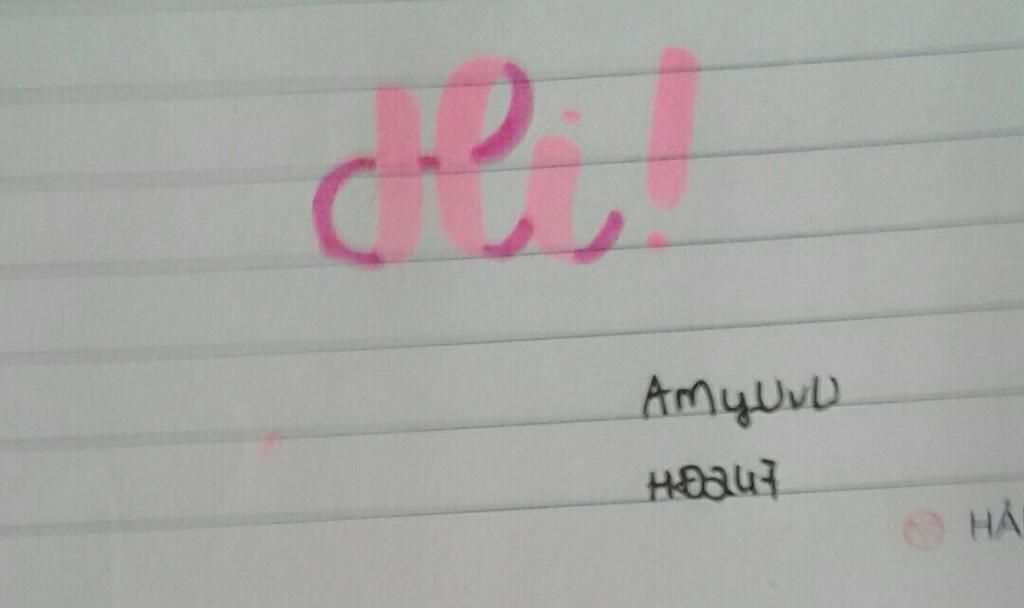 Hi!
AmyUvU
HĐ247
HẢI